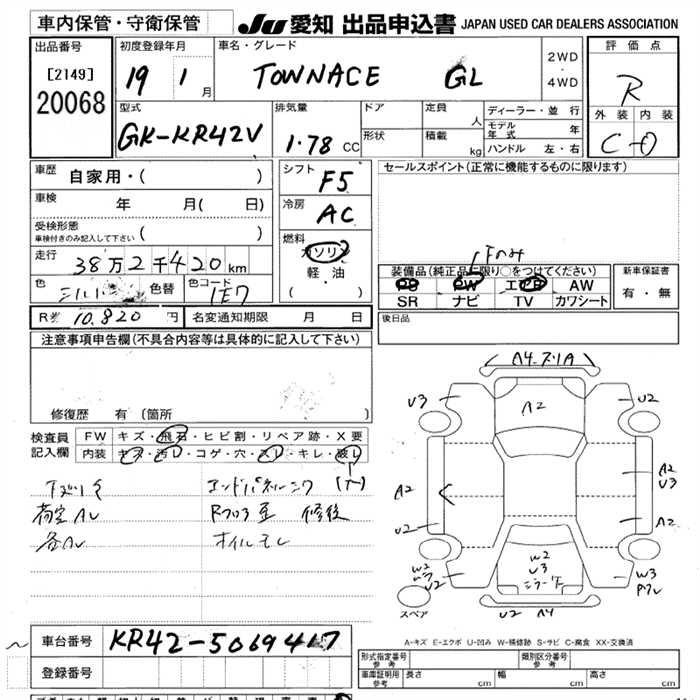 車内保管・守衛保管
JU 愛知 出品申込書 JAPAN USED CAR DEALERS ASSOCIATION
出品番号
[2149]
20068
初度登録年月
19 1 月
車名・グレード
TOWNACE GL
2WD
・
4WD
評価点
R
外装 内装
C D
型式
GK-KR42V
排気量
1.78 CC
ドア
形状
定員
人
積載
kg
ディーラー・並行
モデル年式 年
ハンドル 左・右
車歴 自家用・( )
車検 年 月( 日)
受検形態
車検付きのみ記入して下さい ( )
走行 38万2千420km
色 シルバー 色替 色コード 1E7
シフト F5
冷房 AC
燃料
ガソリン
軽・油
( )
セールスポイント(正常に機能するものに限ります)
Fのみ
装備品(純正品に限り○をつけてください)
PS PW エアB AW
SR ナビ TV カワシート
新車保証書
有・無
R券 10.820 円 名変通知期限 月 日
後日品
注意事項申告欄(不具合内容等は具体的に記入して下さい)
修復歴 有 (箇所 )
検査員記入欄
FW キズ・飛石・ヒビ割・リペア跡・X要
内装 キズ・汚れ・コゲ・穴・スレ・キレ・破レ
荷室AU
各AU
エンドパネル
修後
オイルモレ
U3
A2
U2
A2
U3
A2
U2
A2
W2
U3
U2
W3
U2
スペア
A-キズ E-エクボ U-凹み W-補修跡 S-サビ C-腐食 XX-交換済
車台番号 KR42-5069417
登録番号
形式指定番号
参考
類別区分番号
参考
車庫証明用
参考
長さ cm 幅 cm 高さ cm